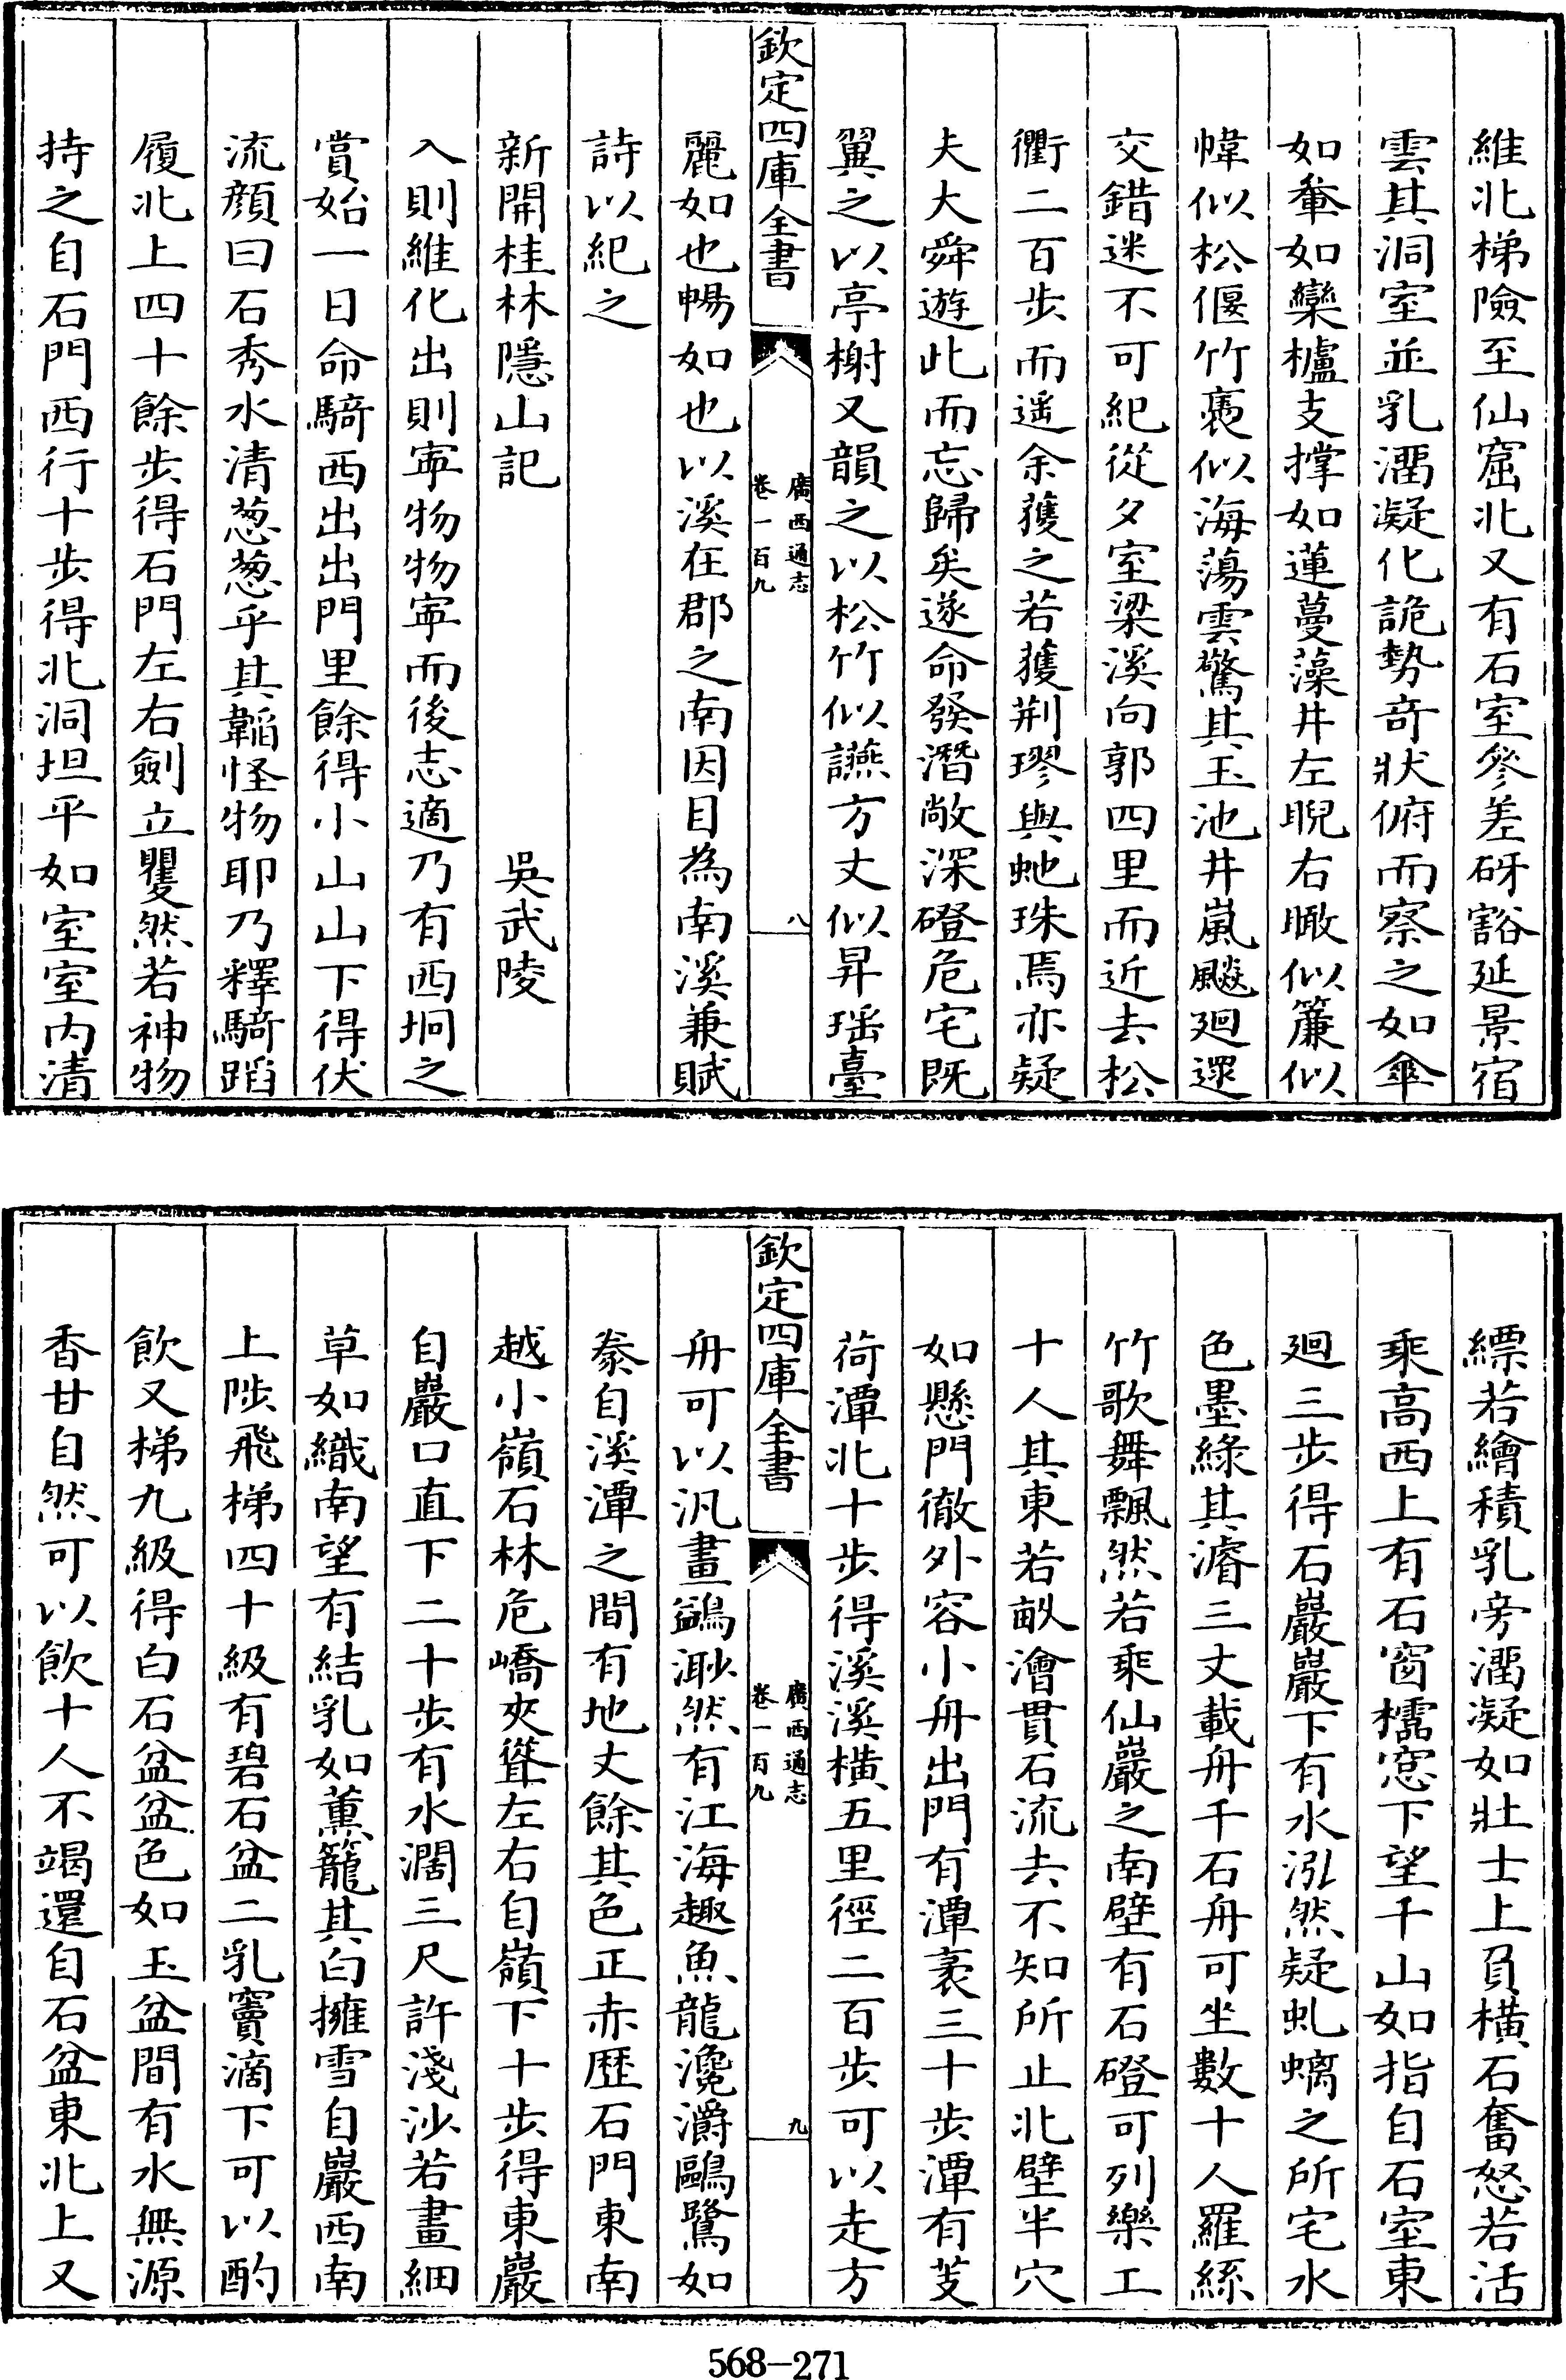 維北梯險至仙窟北又有石室參差砑豁延景宿
雲其洞室並乳溜凝化詭勢竒狀俯而察之如傘
如輂如欒櫨支撑如蓮蔓藻井左睨右瞰似簾似
幃似松偃竹褭似海蕩雲驚其玉池井嵐飈廻還
交錯迷不可紀從夕室梁溪向郭四里而近去松
衢二百步而遥余獲之若獲荆璆與虵珠焉亦疑
夫大舜遊此而忘歸矣遂命發潛敞深磴危宅既
翼之以亭榭又韻之以松竹似讌方丈似昇瑶臺
欽定四庫全書
廣西通志
卷一百九
八
麗如也暢如也以溪在郡之南因目為南溪兼賦
詩以紀之
新開桂林隱山記
吳武陵
入則維化出則寧物物寧而後志適乃有西坰之
賞始一日命騎西出出門里餘得小山山下得伏
流顔曰石秀水清葱葱乎其韜怪物耶乃釋騎蹈
履北上四十餘步得石門左右劍立矍然若神物
持之自石門西行十步得北洞坦平如室室内清
縹若繪積乳旁溜凝如壯士上負横石奮怒若活
乘高西上有石窗櫺窓下望千山如指自石室東
廻三步得石巖巖下有水泓然疑虬螭之所宅水
色墨綠其濬三丈載舟千石舟可坐數十人羅絲
竹歌舞飄然若乘仙巖之南壁有石磴可列樂工
十人其東若畝澮貫石流去不知所止北壁半穴
如懸門徹外容小舟出門有潭袤三十步潭有芰
荷潭北十步得溪溪横五里徑二百步可以走方
欽定四庫全書
廣西通志
卷一百九
九
舟可以汎畫鷁渺然有江海趣魚龍瀺灂鷗鷺如
豢自溪潭之間有地丈餘其色正赤歴石門東南
越小嶺石林危嶠夾聳左右自嶺下十步得東巖
自巖口直下二十步有水濶三尺許淺沙若畫細
草如織南望有結乳如薰籠其白擁雪自巖西南
上陟飛梯四十級有碧石盆二乳竇滴下可以酌
飲又梯九級得白石盆盆色如玉盆間有水無源
香甘自然可以飲十人不竭還自石盆東北上又
568-271